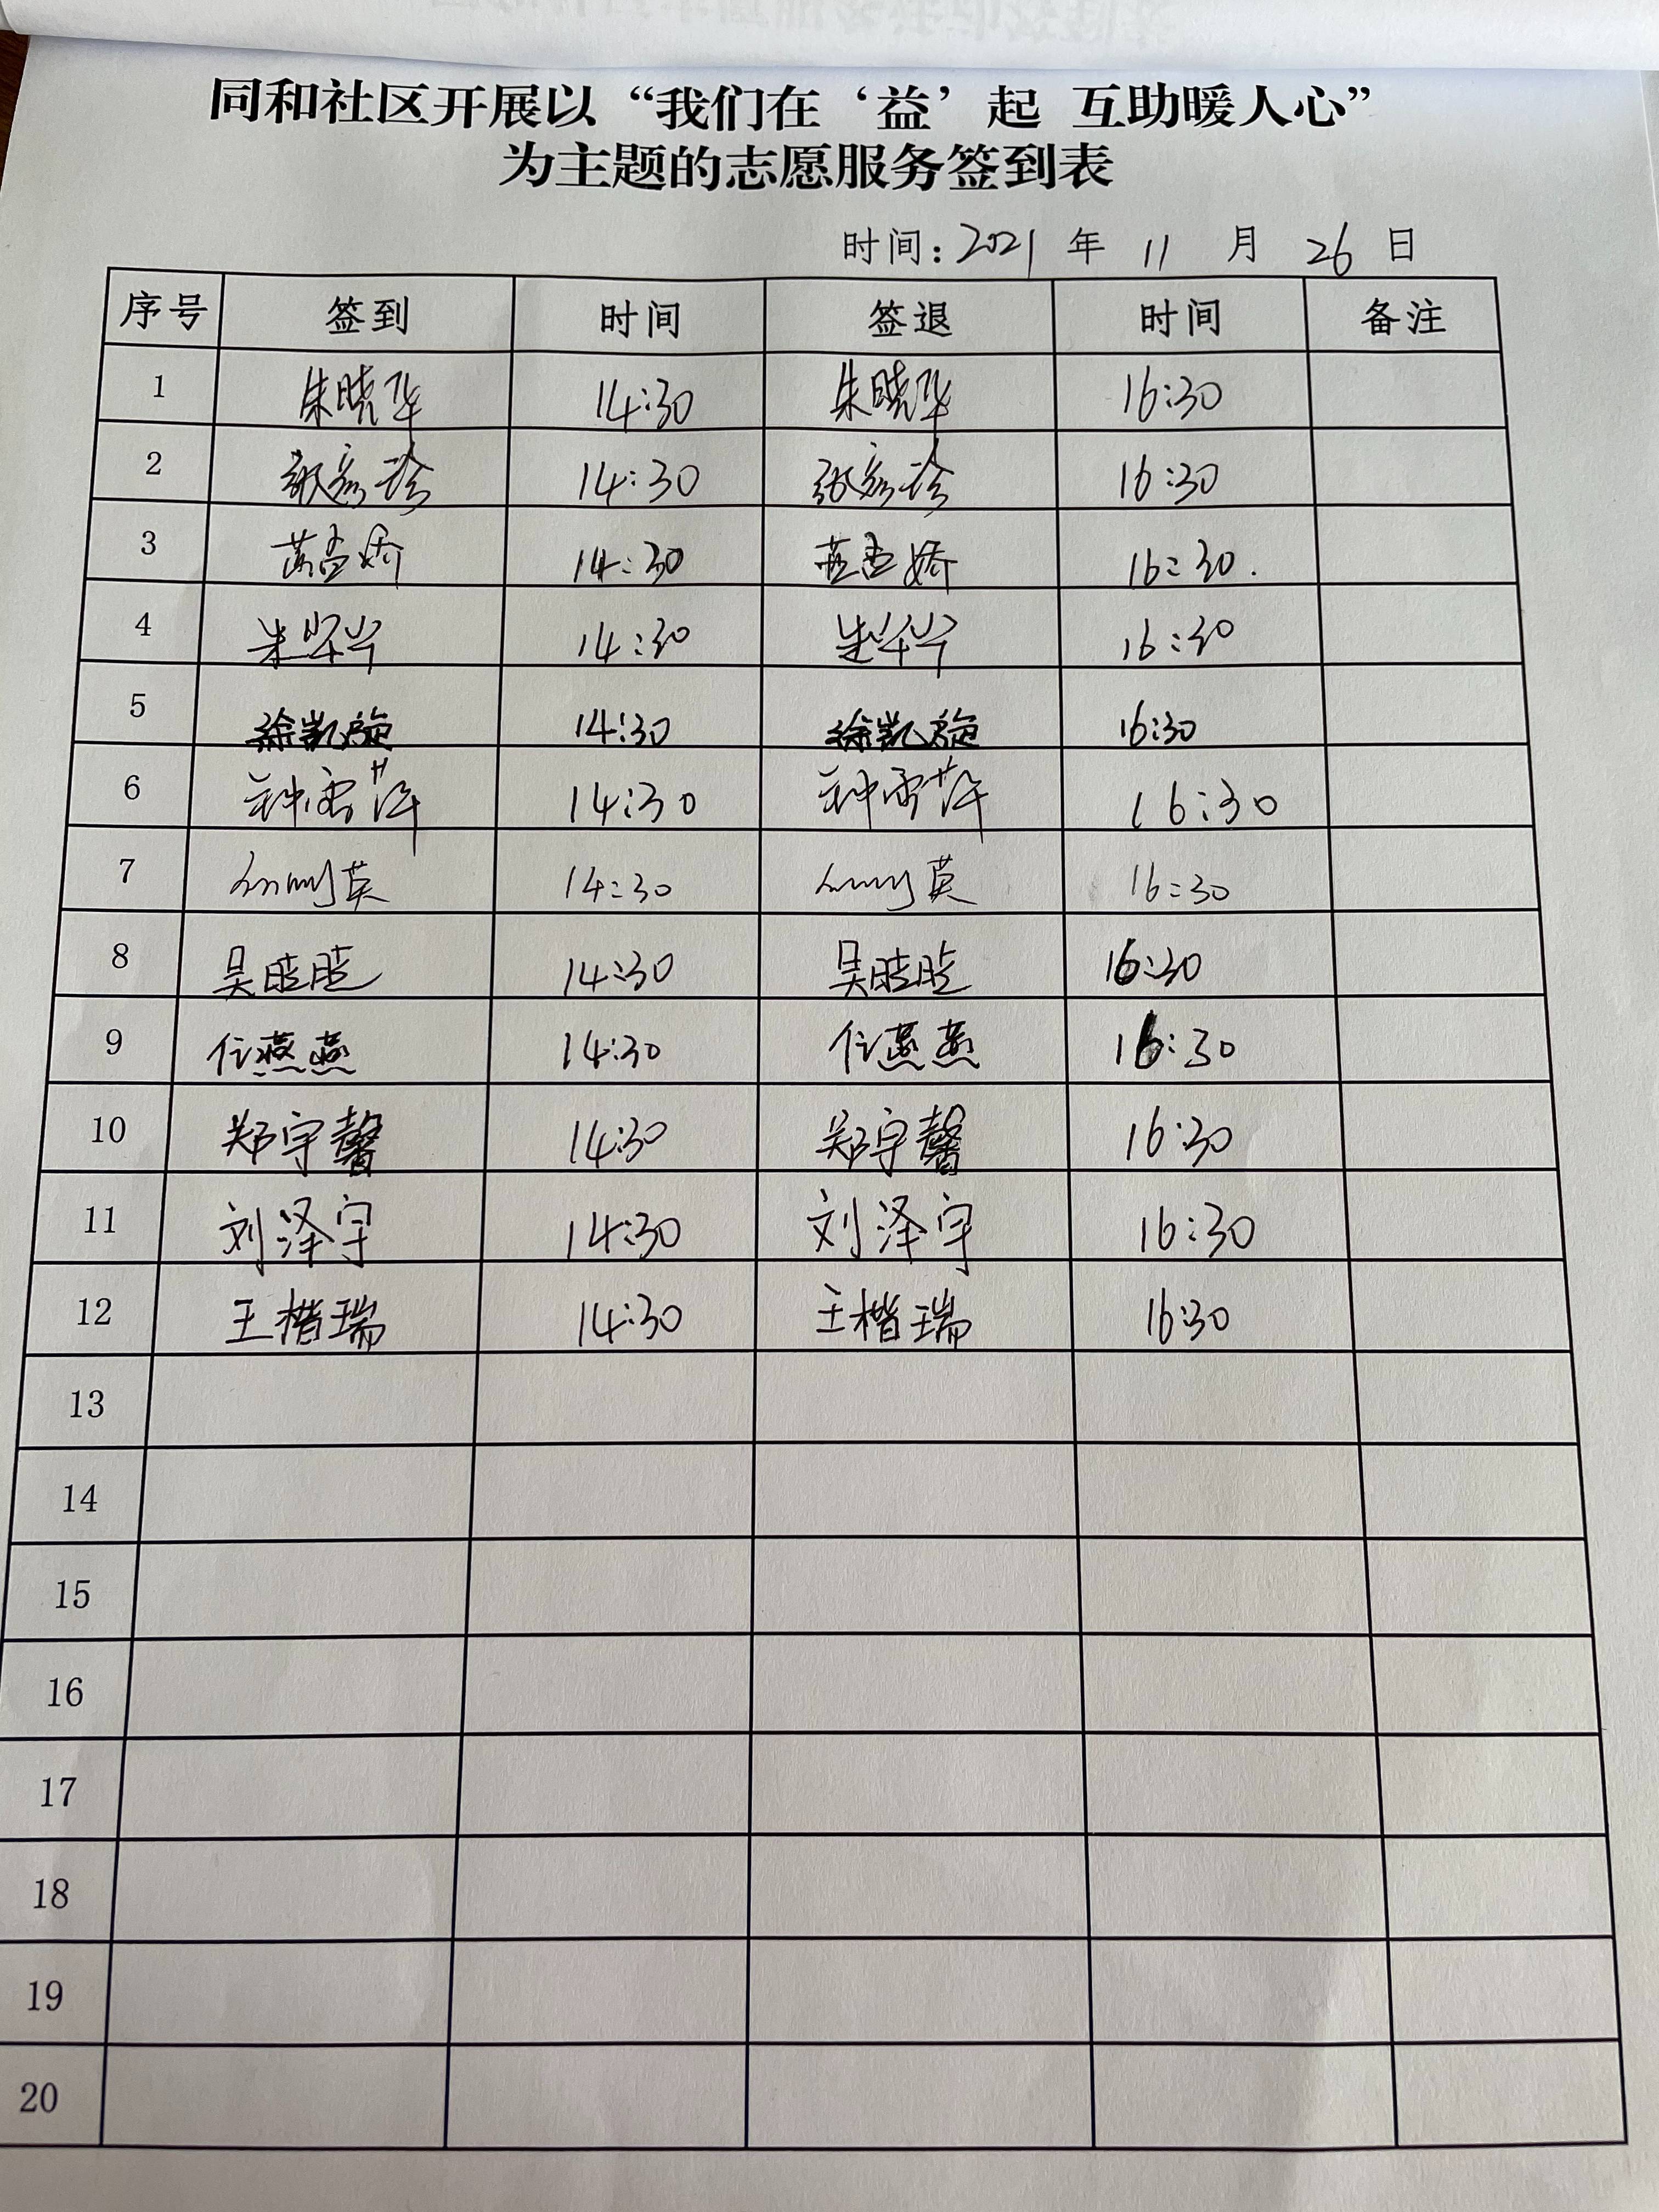 同和社区开展以“我们在‘益’起 互助暖人心”
为主题的志愿服务签到表
时间：2021 年 11 月 26 日
序号 签到 时间 签退 时间 备注
1 朱晓华 14:30 朱晓华 16:30
2 张彦珍 14:30 张彦珍 16:30
3 黄孟娇 14:30 黄孟娇 16:30.
4 14:30 16:30
5 徐凯旋 14:30 徐凯旋 16:30
6 钟雪萍 14:30 钟雪萍 16:30
7 14:30 16:30
8 吴晓晓 14:30 吴晓晓 16:30
9 任燕燕 14:30 任燕燕 16:30
10 郑宇馨 14:30 郑宇馨 16:30
11 刘泽宇 14:30 刘泽宇 16:30
12 王楷瑞 14:30 王楷瑞 16:30
13
14
15
16
17
18
19
20